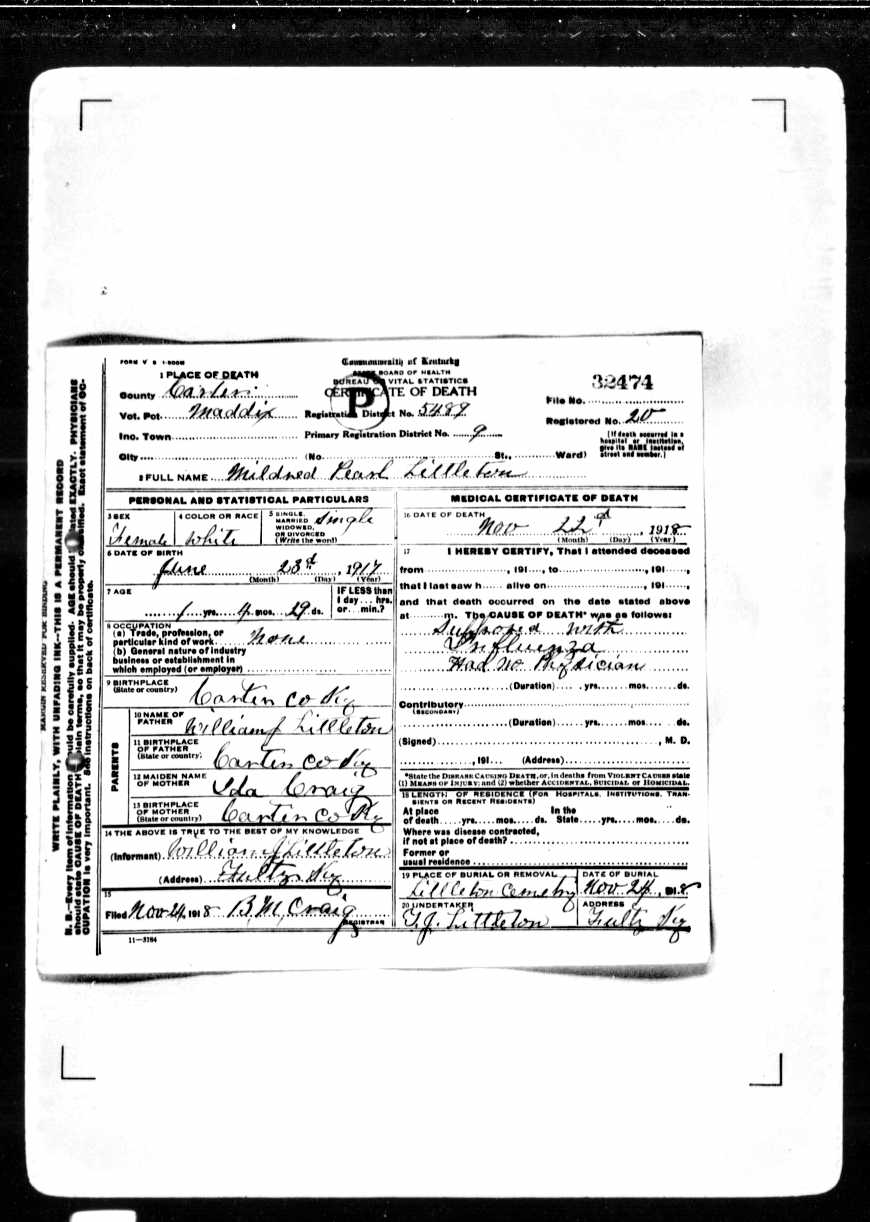 FORM V S 1-500M
Commonwealth of Kentucky
STATE BOARD OF HEALTH
BUREAU OF VITAL STATISTICS
CERTIFICATE OF DEATH
P
1 PLACE OF DEATH
County Carter
Vot. Pct. Maddix
Inc. Town
City (No. St., Ward)
Registration District No. 5489
Primary Registration District No. 9
32474
File No.
Registered No. 20
[If death occurred in a hospital or institution, give its NAME instead of street and number.]
2 FULL NAME Mildred Pearl Littleton
PERSONAL AND STATISTICAL PARTICULARS
3 SEX
Female
4 COLOR OR RACE
White
5 SINGLE, MARRIED WIDOWED, OR DIVORCED (Write the word)
Single
6 DATE OF BIRTH
June 23d, 1917
(Month) (Day) (Year)
7 AGE
1 yrs. 4 mos. 29 ds.
IF LESS than 1 day... hrs. or... min.?
8 OCCUPATION
(a) Trade, profession, or particular kind of work None
(b) General nature of industry business or establishment in which employed (or employer)
9 BIRTHPLACE
(State or country) Carter Co Ky
PARENTS
10 NAME OF FATHER William J Littleton
11 BIRTHPLACE OF FATHER (State or country) Carter Co Ky
12 MAIDEN NAME OF MOTHER Ida Craig
13 BIRTHPLACE OF MOTHER (State or country) Carter Co Ky
14 THE ABOVE IS TRUE TO THE BEST OF MY KNOWLEDGE
(Informant) William J Littleton
(Address) Fultz Ky
15
Filed Nov 24, 1918 B. M. Craig
REGISTRAR
11-3184
MEDICAL CERTIFICATE OF DEATH
16 DATE OF DEATH
Nov 22d, 1918
(Month) (Day) (Year)
17 I HEREBY CERTIFY, That I attended deceased
from , 191 , to , 191 ,
that I last saw h alive on , 191 ,
and that death occurred on the date stated above
at m. The CAUSE OF DEATH* was as follows:
Supposed with
Influenza
Had no Physician
(Duration) yrs. mos. ds.
Contributory
(SECONDARY)
(Duration) yrs. mos. ds.
(Signed) , M. D.
, 191 (Address)
*State the DISEASE CAUSING DEATH, or, in deaths from VIOLENT CAUSES state
(1) MEANS OF INJURY; and (2) whether ACCIDENTAL, SUICIDAL or HOMICIDAL.
18 LENGTH OF RESIDENCE (FOR HOSPITALS, INSTITUTIONS, TRANSIENTS OR RECENT RESIDENTS)
At place of death yrs. mos. ds. In the State yrs. mos. ds.
Where was disease contracted,
if not at place of death?
Former or
usual residence
19 PLACE OF BURIAL OR REMOVAL
Littleton Cemetry
DATE OF BURIAL
Nov 24, 1918
20 UNDERTAKER
T. J. Littleton
ADDRESS
Fultz Ky
MARGIN RESERVED FOR BINDING
WRITE PLAINLY, WITH UNFADING INK—THIS IS A PERMANENT RECORD
N. B.—Every item of information should be carefully supplied. AGE should be stated EXACTLY. PHYSICIANS
should state CAUSE OF DEATH in plain terms, so that it may be properly classified. Exact statement of OC-
CUPATION is very important. See instructions on back of certificate.